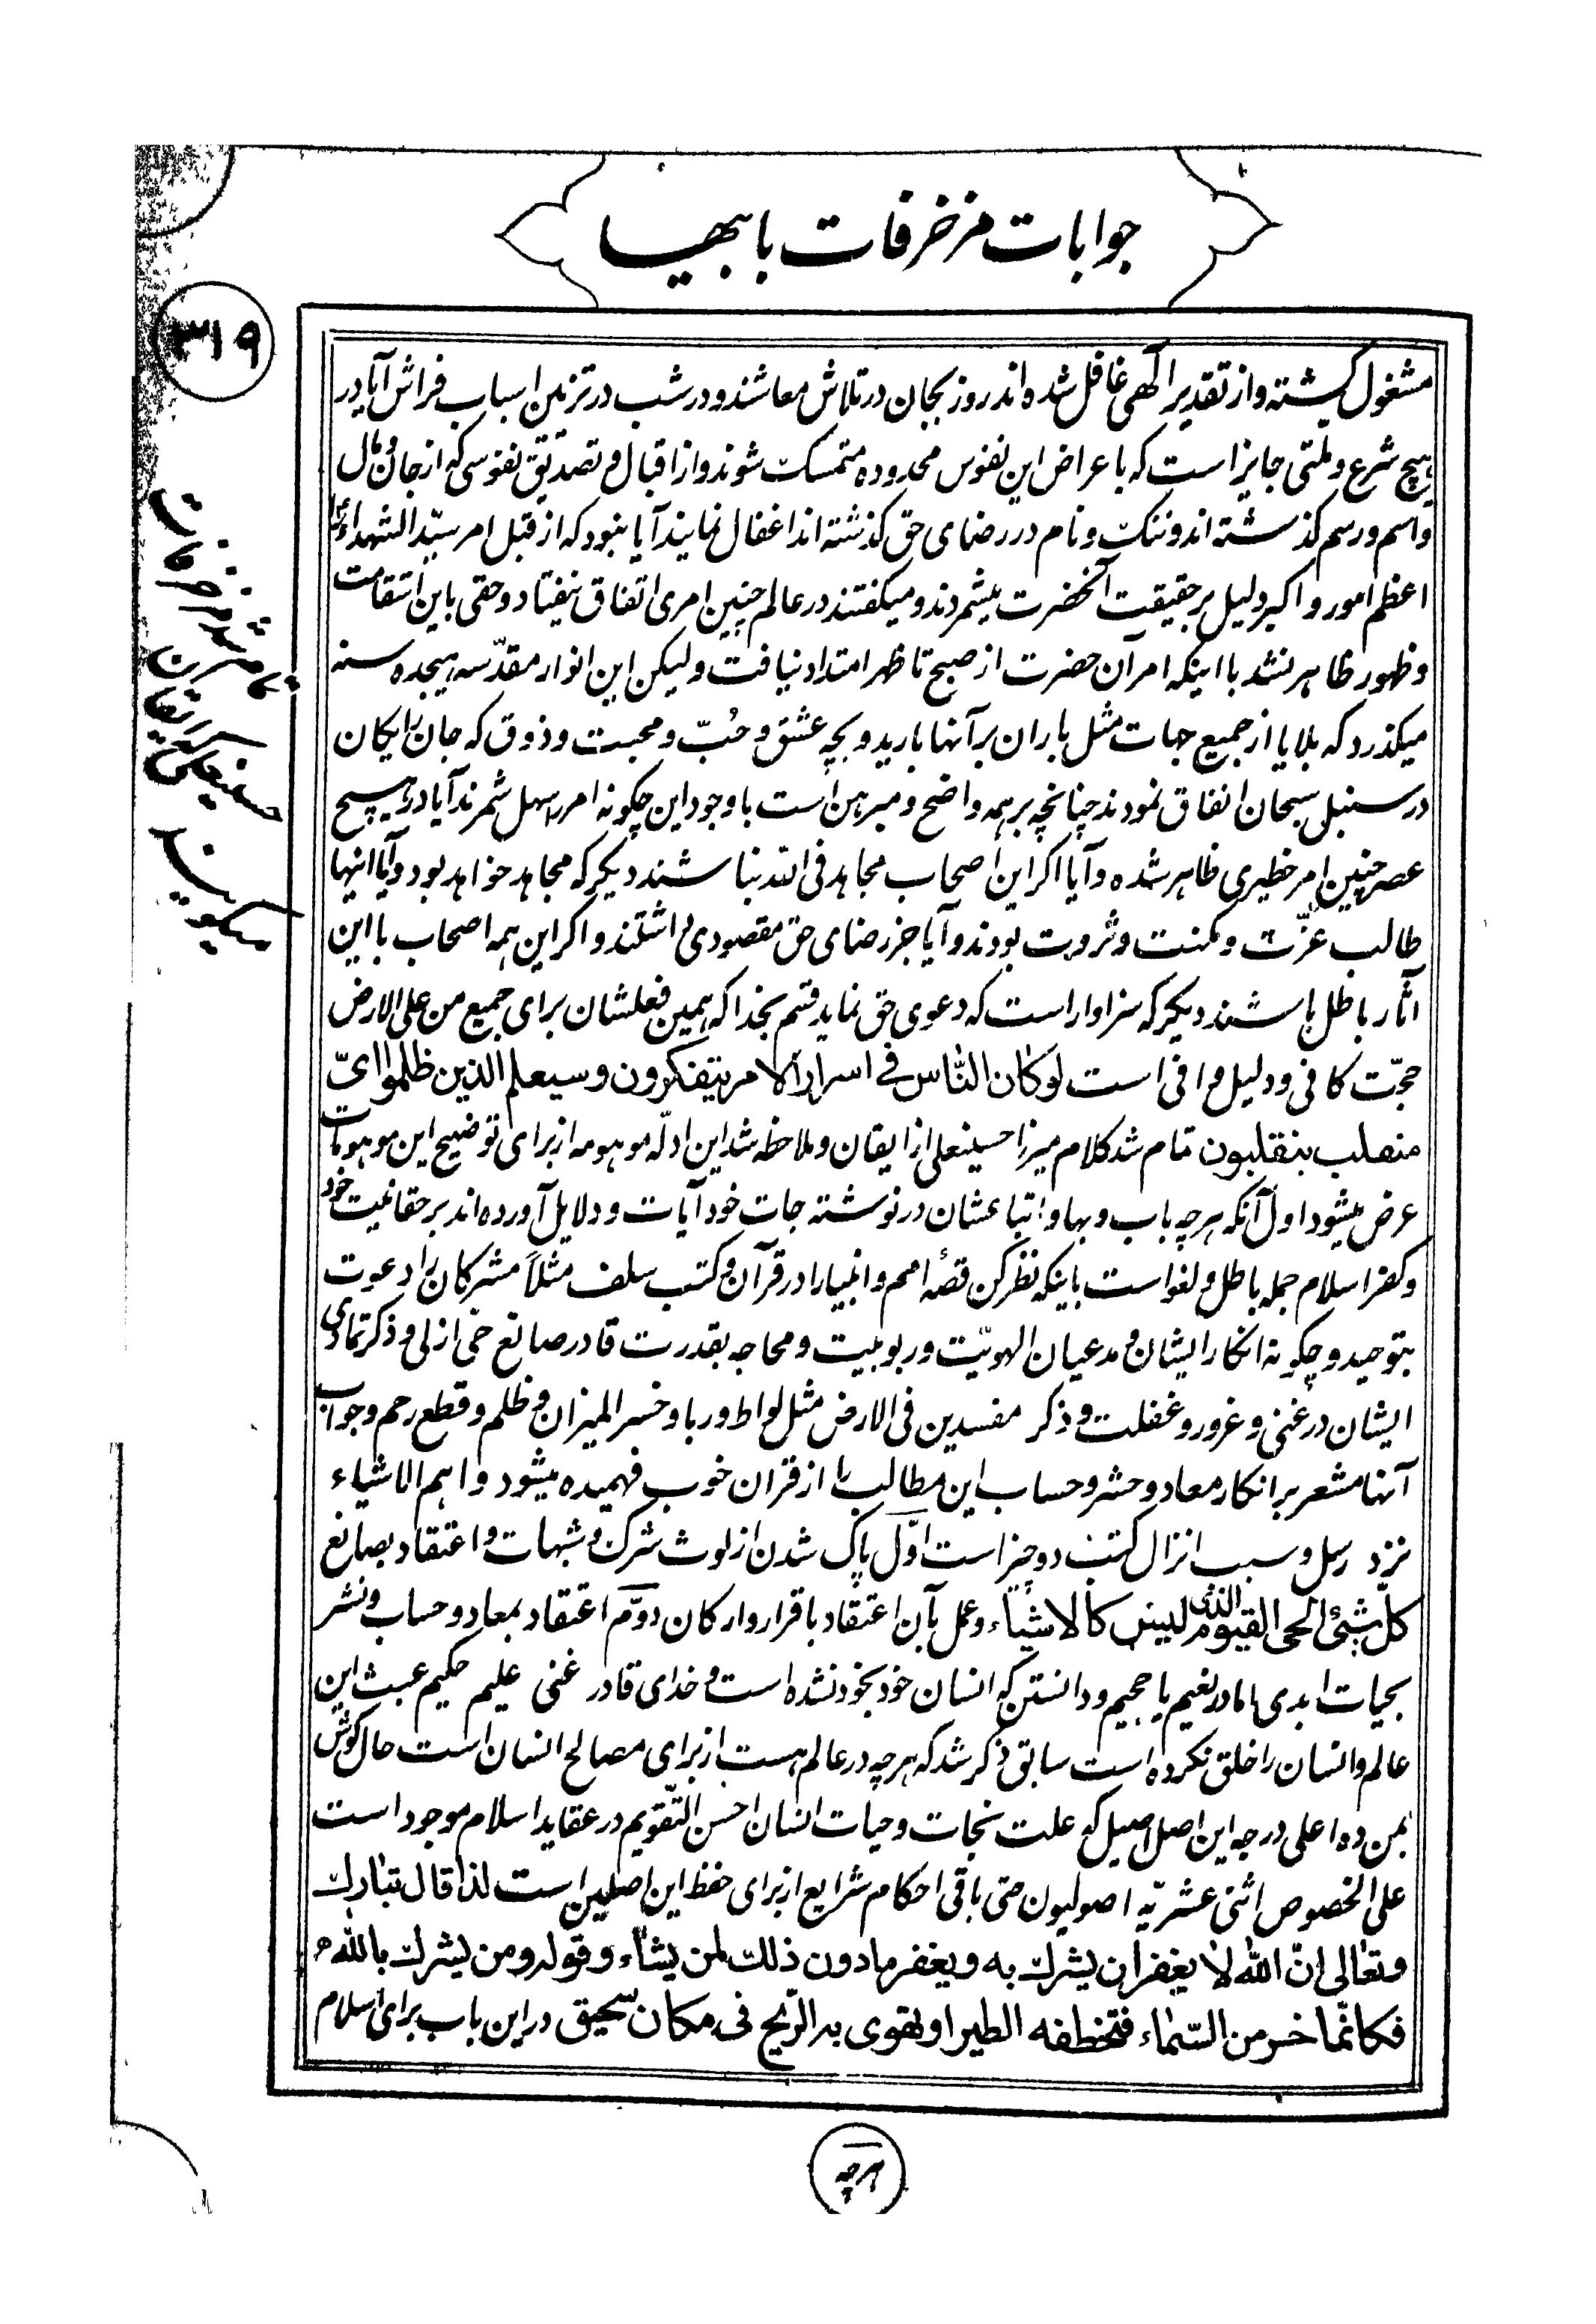 جوابات مزخرفات بابیها
۳۱۹
مشغول گشته و از تقدیر الهی غافل شده اند روز بجان در تلاش معاشند و در شب در تزئین اسباب فراش آیا در
هیچ شرع و ملتی جایز است که باعراض این نفوس محدوده متمسک شوند و از اقبال و تصدیق نفوسی که از جان و مال
و اسم و رسم گذشته اند و ننگ و نام در رضای حق گذشته اند اغفال نمایند آیا نبود که از قبل امر سیّد الشهداء را
اعظم امور و اکبر دلیل بر حقیقت آنحضرت میشمردند و میگفتند در عالم چنین امری اتفاق نیفتاد و حقی باین استقامت
و ظهور ظاهر نشد با اینکه امر آن حضرت از صبح تا ظهر امتداد نیافت و لیکن این انوار مقدّسه هیجده سنه
میگذرد که بلایا از جمیع جهات مثل باران بر آنها بارید و بچه عشق و حُبّ و محبت و ذوق که جان رایگان
در سبیل سبحان انفاق نمودند چنانچه بر همه واضح و مبرهن است با وجود این چگونه امر را سهل شمرند آیا در هیچ
عصر چنین امر خطیری ظاهر شده و آیا اگر این اصحاب مجاهد فی الله نباشند دیگر که مجاهد خواهد بود و آیا اینها
طالب عزّت و مکنت و ثروت بودند و آیا جز رضای حق مقصودی داشتند و اگر این همه اصحاب با این
آثار باطل باشند دیگر که سزاوار است که دعوی حق نماید قسم بخدا که همین فعلشان برای جمیع من علی الارض
حجّت کافی و دلیل وافی است لو کان النّاس فی اسرار الامر یتفکرون و سیعلم الذین ظلموا ایّ
منقلب ینقلبون تمام شد کلام میرزا حسینعلی از ایقان و ملاحظه شد این ادلّه موهومه از برای توضیح این موهومات
عرض میشود اول آنکه هرچه باب و بها و اتباعشان در نوشته جات خود آیات و دلایل آورده اند بر حقانیت خود
و کفر اسلام جمله باطل و لغو است باینکه نظر کن قصّهٔ امم و انبیا را در قرآن و کتب سلف مثلاً مشرکان را دعوت
بتوحید و چگونه انکار ایشان و مدعیان الهویّت و ربوبیت و محاجه بقدرت قادر صانع حی ازلی و ذکر تمادی
ایشان در غنی و غرور و غفلت و ذکر مفسدین فی الارض مثل لواط و ربا و خسر المیزان و ظلم و قطع رحم و جواب
آنها مشعر بر انکار معاد و حشر و حساب این مطالب را از قران خوب فهمیده میشود و اهم الاشیاء
نزد رسل و سبب انزال کتب دو چیز است اوّل پاک شدن از لوث شرک و شبهات و اعتقاد بصانع
کلّ شیئ الحی القیّوم الذی لیس کالاشیاء و عمل بآن اعتقاد باقرار و ارکان دوّم اعتقاد بمعاد و حساب و نشر
بحیات ابدی اما در نعیم یا جحیم و دانستن که انسان خود بخود نشده است و خدای قادر غنی علیم حکیم عبث این
عالم و انسان را خلق نکرده است سابق ذکر شد که هرچه در عالم هست از برای مصالح انسان است حال گوش
بمن ده اعلی درجه این اصل اصیل که علت نجات و حیات انسان احسن التّقویم در عقاید اسلام موجود است
علی الخصوص اثنی عشریّه اصولیون حتی باقی احکام شرایع از برای حفظ این اصلین است لذا قال تبارک
و تعالی انّ الله لا یغفر ان یشرک به و یغفر ما دون ذلک لمن یشاء و قوله و من یشرک بالله
فکانّما خر من السّماء فتخطفه الطیر او تهوی به الرّیح فی مکان سحیق در این باب برای اسلام
هرچه